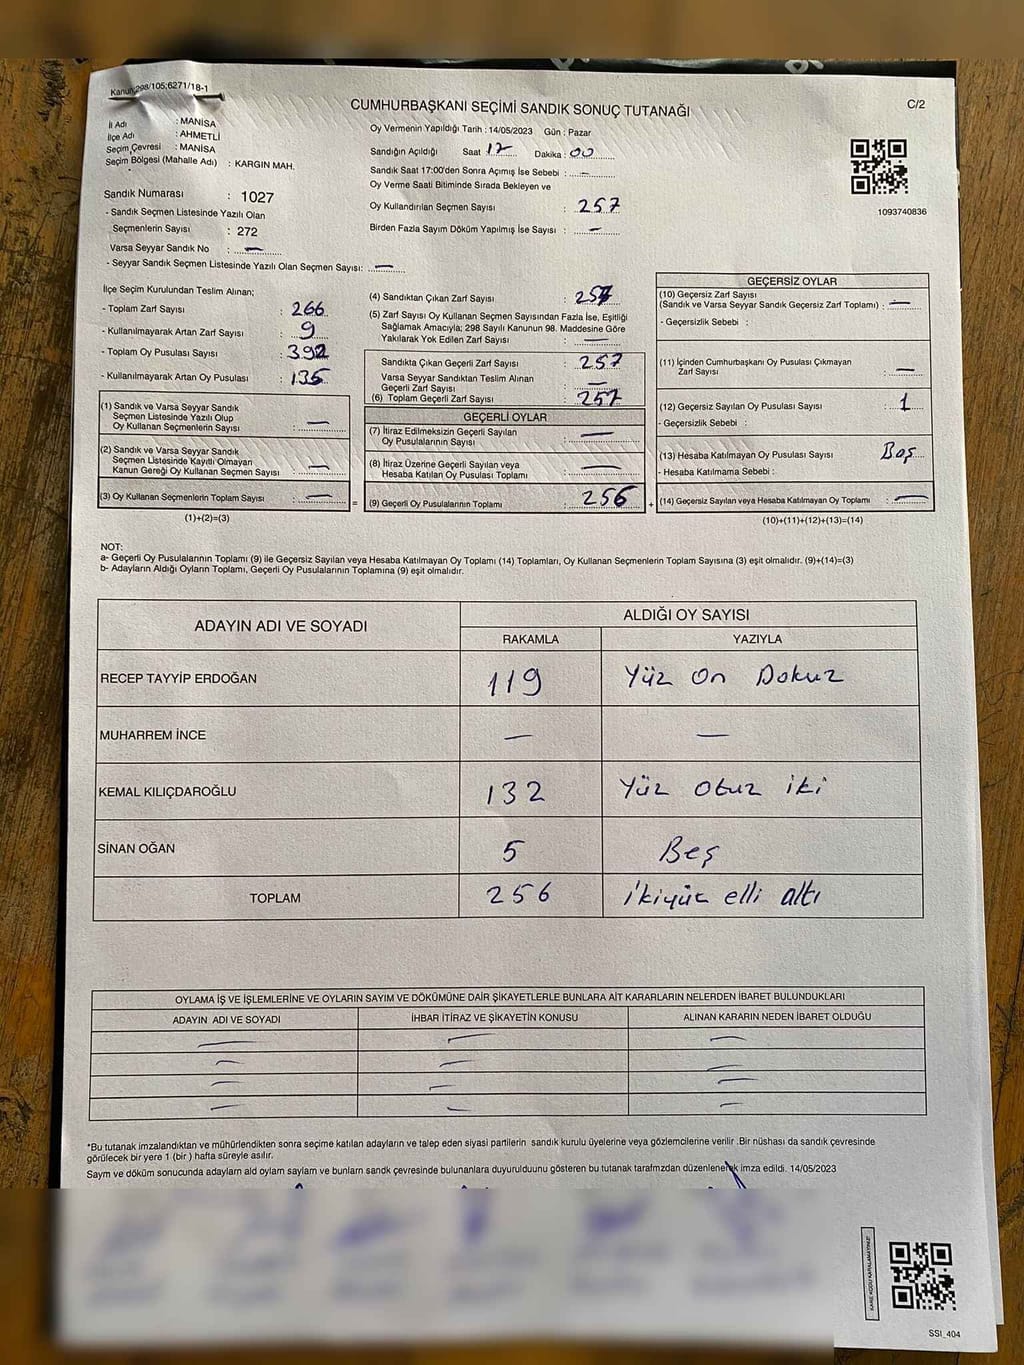 Kanun;298/105;6271/18-1
CUMHURBAŞKANI SEÇİMİ SANDIK SONUÇ TUTANAĞI
C/2
İl Adı : MANİSA
İlçe Adı : AHMETLİ
Seçim Çevresi : MANİSA
Seçim Bölgesi (Mahalle Adı) : KARGIN MAH.
Sandık Numarası : 1027
- Sandık Seçmen Listesinde Yazılı Olan
Seçmenlerin Sayısı : 272
Varsa Seyyar Sandık No : —
- Seyyar Sandık Seçmen Listesinde Yazılı Olan Seçmen Sayısı: —
Oy Vermenin Yapıldığı Tarih : 14/05/2023 Gün : Pazar
Sandığın Açıldığı Saat 17 Dakika : 00
Sandık Saat 17:00'den Sonra Açımış İse Sebebi : —
Oy Verme Saati Bitiminde Sırada Bekleyen ve
Oy Kullandırılan Seçmen Sayısı : 257
Birden Fazla Sayım Döküm Yapılmış İse Sayısı : —
1093740836
İlçe Seçim Kurulundan Teslim Alınan;
- Toplam Zarf Sayısı : 266
- Kullanılmayarak Artan Zarf Sayısı : 9
- Toplam Oy Pusulası Sayısı : 392
- Kullanılmayarak Artan Oy Pusulası : 135
(1) Sandık ve Varsa Seyyar Sandık
Seçmen Listesinde Yazılı Olup
Oy Kullanan Seçmenlerin Sayısı : —
(2) Sandık ve Varsa Seyyar Sandık
Seçmen Listesinde Kayıtlı Olmayan
Kanun Gereği Oy Kullanan Seçmen Sayısı : —
(3) Oy Kullanan Seçmenlerin Toplam Sayısı : —
(1)+(2)=(3)
(4) Sandıktan Çıkan Zarf Sayısı : 257
(5) Zarf Sayısı Oy Kullanan Seçmen Sayısından Fazla İse, Eşitliği
Sağlamak Amacıyla; 298 Sayılı Kanunun 98. Maddesine Göre
Yakılarak Yok Edilen Zarf Sayısı : —
Sandıkta Çıkan Geçerli Zarf Sayısı : 257
Varsa Seyyar Sandıktan Teslim Alınan
Geçerli Zarf Sayısı : —
(6) Toplam Geçerli Zarf Sayısı : 257
GEÇERLİ OYLAR
(7) İtiraz Edilmeksizin Geçerli Sayılan
Oy Pusulalarının Sayısı : —
(8) İtiraz Üzerine Geçerli Sayılan veya
Hesaba Katılan Oy Pusulası Toplamı : —
= (9) Geçerli Oy Pusulalarının Toplamı : 256 +
GEÇERSİZ OYLAR
(10) Geçersiz Zarf Sayısı
(Sandık ve Varsa Seyyar Sandık Geçersiz Zarf Toplamı) : —
- Geçersizlik Sebebi :
(11) İçinden Cumhurbaşkanı Oy Pusulası Çıkmayan
Zarf Sayısı : —
(12) Geçersiz Sayılan Oy Pusulası Sayısı : 1
- Geçersizlik Sebebi :
(13) Hesaba Katılmayan Oy Pusulası Sayısı : Boş
- Hesaba Katılmama Sebebi :
(14) Geçersiz Sayılan veya Hesaba Katılmayan Oy Toplamı : —
(10)+(11)+(12)+(13)=(14)
NOT:
a- Geçerli Oy Pusulalarının Toplamı (9) ile Geçersiz Sayılan veya Hesaba Katılmayan Oy Toplamı (14) Toplamları, Oy Kullanan Seçmenlerin Toplam Sayısına (3) eşit olmalıdır. (9)+(14)=(3)
b- Adayların Aldığı Oyların Toplamı, Geçerli Oy Pusulalarının Toplamına (9) eşit olmalıdır.
ADAYIN ADI VE SOYADI
ALDIĞI OY SAYISI
RAKAMLA YAZIYLA
RECEP TAYYİP ERDOĞAN 119 Yüz On Dokuz
MUHARREM İNCE — —
KEMAL KILIÇDAROĞLU 132 Yüz Otuz iki
SİNAN OĞAN 5 Beş
TOPLAM 256 İkiyüz elli altı
OYLAMA İŞ VE İŞLEMLERİNE VE OYLARIN SAYIM VE DÖKÜMÜNE DAİR ŞİKAYETLERLE BUNLARA AİT KARARLARIN NELERDEN İBARET BULUNDUKLARI
ADAYIN ADI VE SOYADI İHBAR İTİRAZ VE ŞİKAYETİN KONUSU ALINAN KARARIN NEDEN İBARET OLDUĞU
— — —
— — —
— — —
— — —
*Bu tutanak imzalandıktan ve mühürlendikten sonra seçime katılan adayların ve talep eden siyasi partilerin sandık kurulu üyelerine veya gözlemcilerine verilir .Bir nüshası da sandık çevresinde
görülecek bir yere 1 (bir ) hafta süreyle asılır.
Saym ve döküm sonucunda adaylarn ald oylam saylam ve bunlarn sandk çevresinde bulunanlara duyurulduunu gösteren bu tutanak tarafmzdan düzenlenerek imza edildi. 14/05/2023
SSI_404